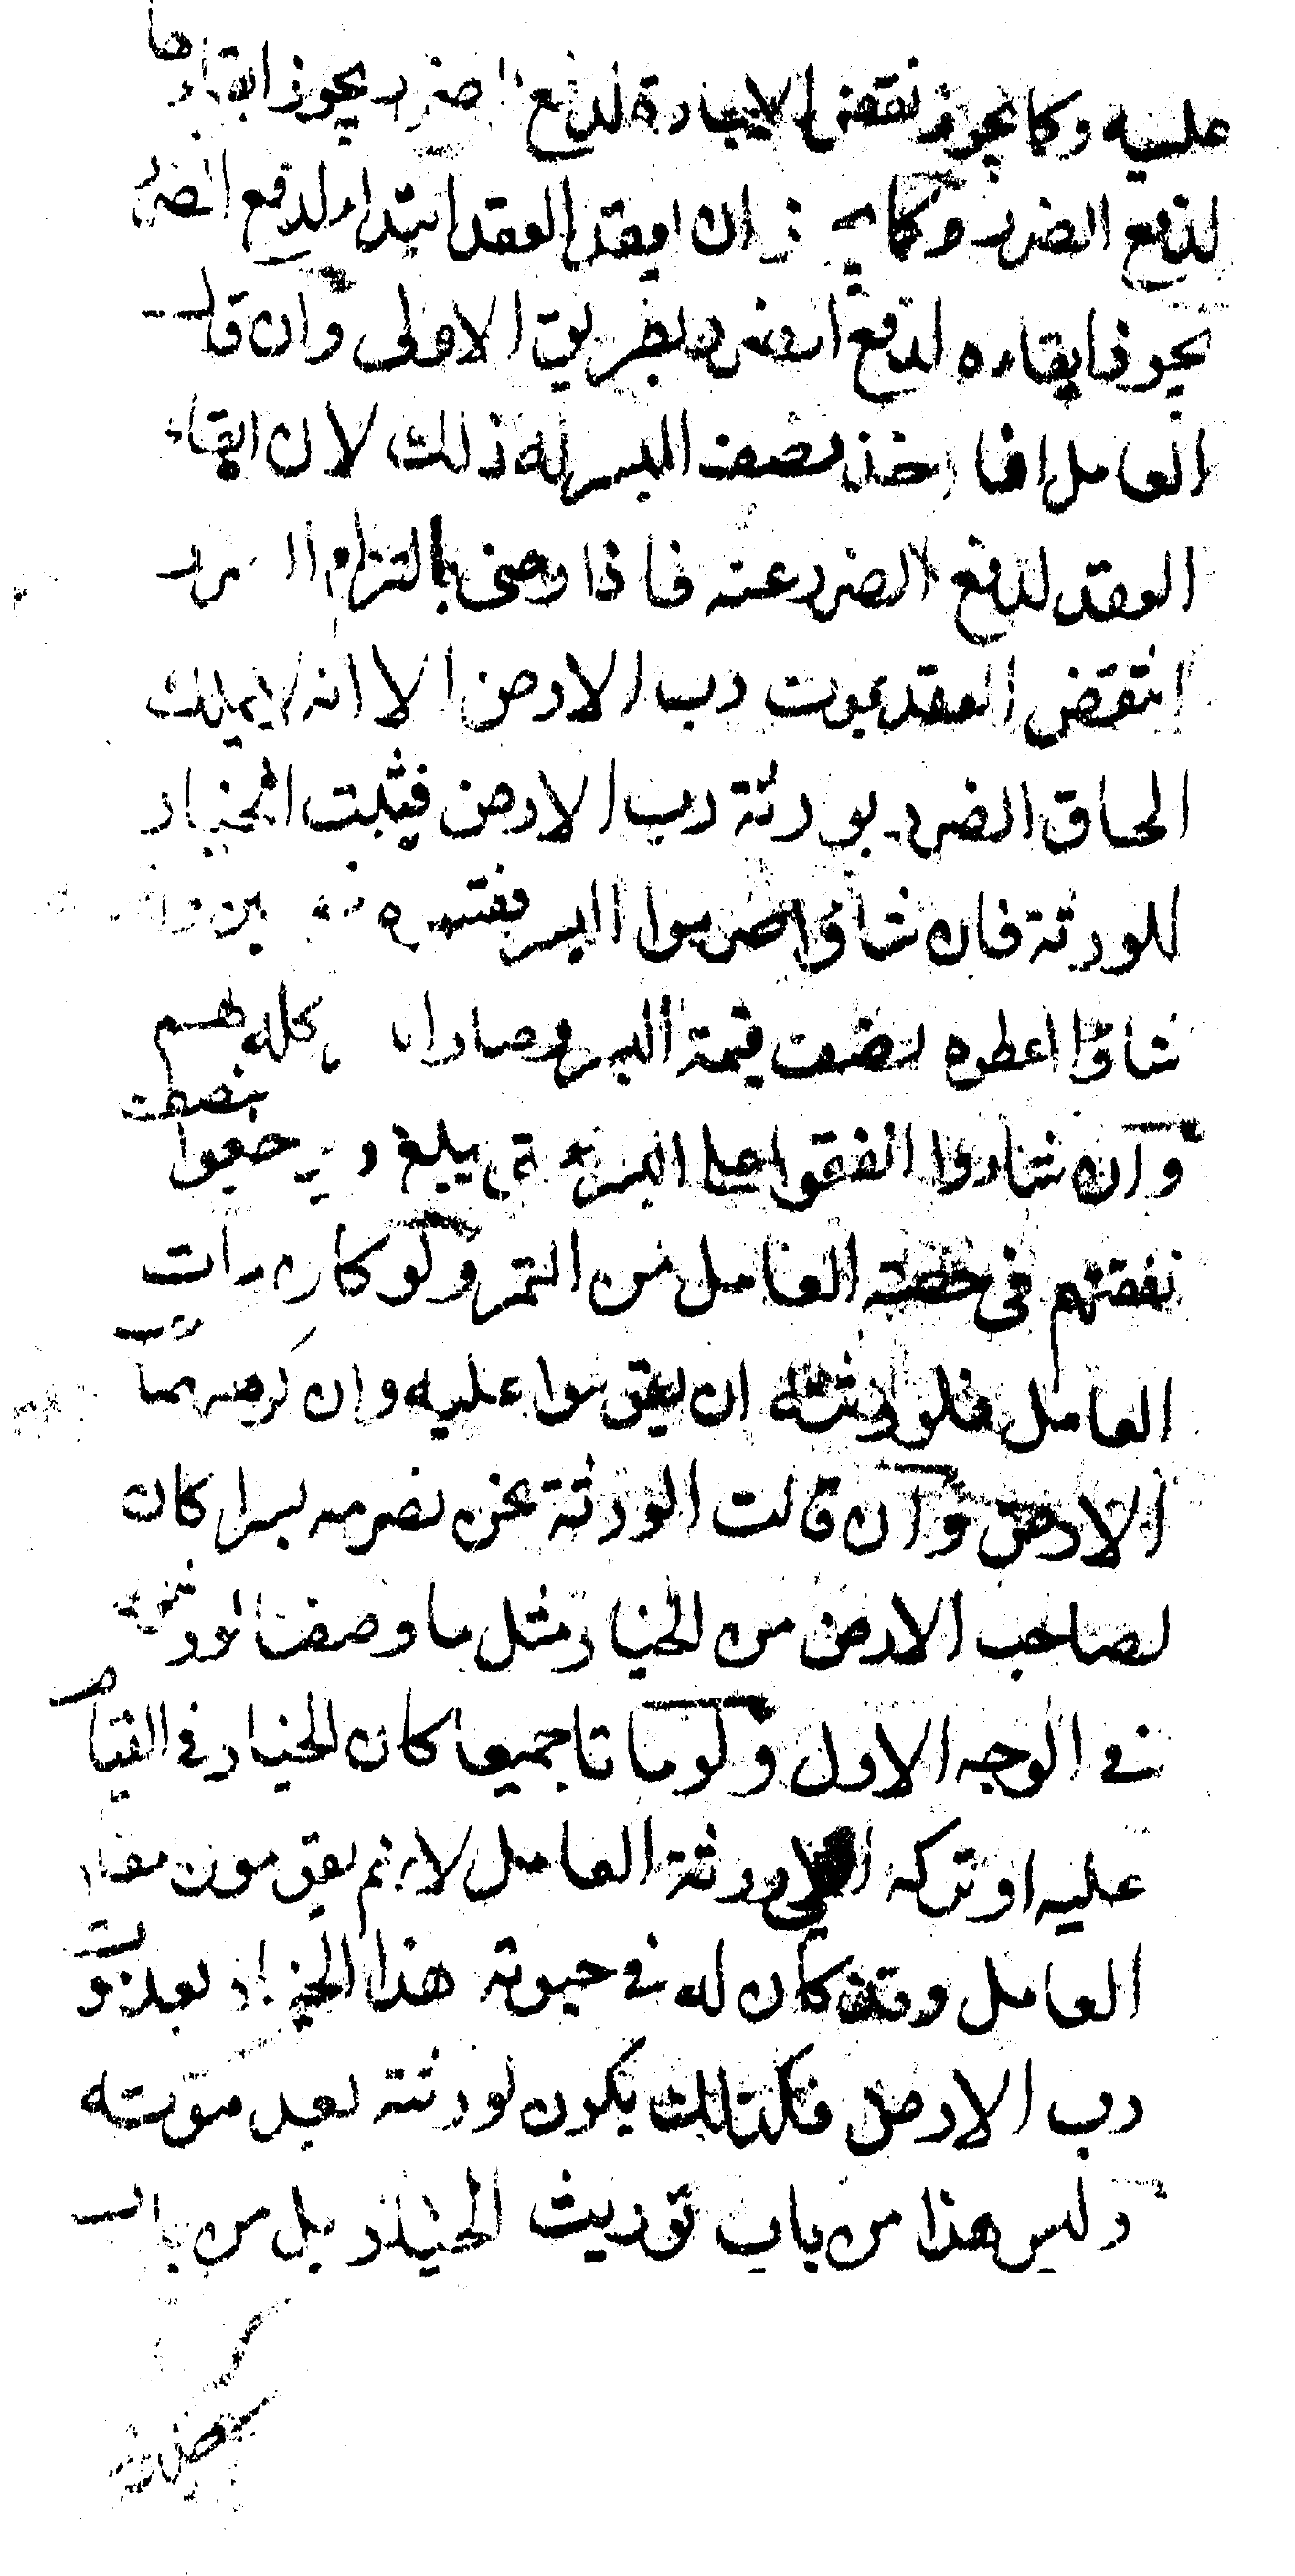 عليه وكما يجوز نقض الاجارة لدفع الضرر يجوز ابقاءها
لدفع الضرر وكما يجوز ان يعقد العقد ابتداء لدفع الضرر
يجوز ابقاءه لدفع الضرر بطريق الاولى وان قال
العامل انا اخذ نصف البسر له ذلك لان ابقاء
العقد لدفع الضرر عنه فاذا رضى بالتزام الضرر
انتقض العقد بموت رب الارض الا انه لا يملك
الحاق الضرر بورثة رب الارض فيثبت الخيار
للورثة فان شاؤا صرموا البسر فقسموه وان
شاؤا اعطوه نصف قيمة البسر وصار البسر كله لهم
وان شاروا انفقوا على البسر حتى يبلغ ويرجعوا بنصف
نفقتهم فى حصة العامل من الثمر ولو كان مات
العامل فلورثته ان يقوموا عليه وان كره صاحب
الارض وان قالت الورثة نحن نصرمه بسرا كان
لصاحب الارض من الخيار مثل ما وصفنا لورثته
فى الوجه الاول ولو ماتا جميعا كان الخيار فى القيام
عليه او تركه الى ورثة العامل لانهم يقومون مقام
العامل وقد كان له فى حيوته هذا الخيار بعد موت
رب الارض فكذلك يكون لورثته بعد موته
وليس هذا من باب توريث الخيار بل من باب